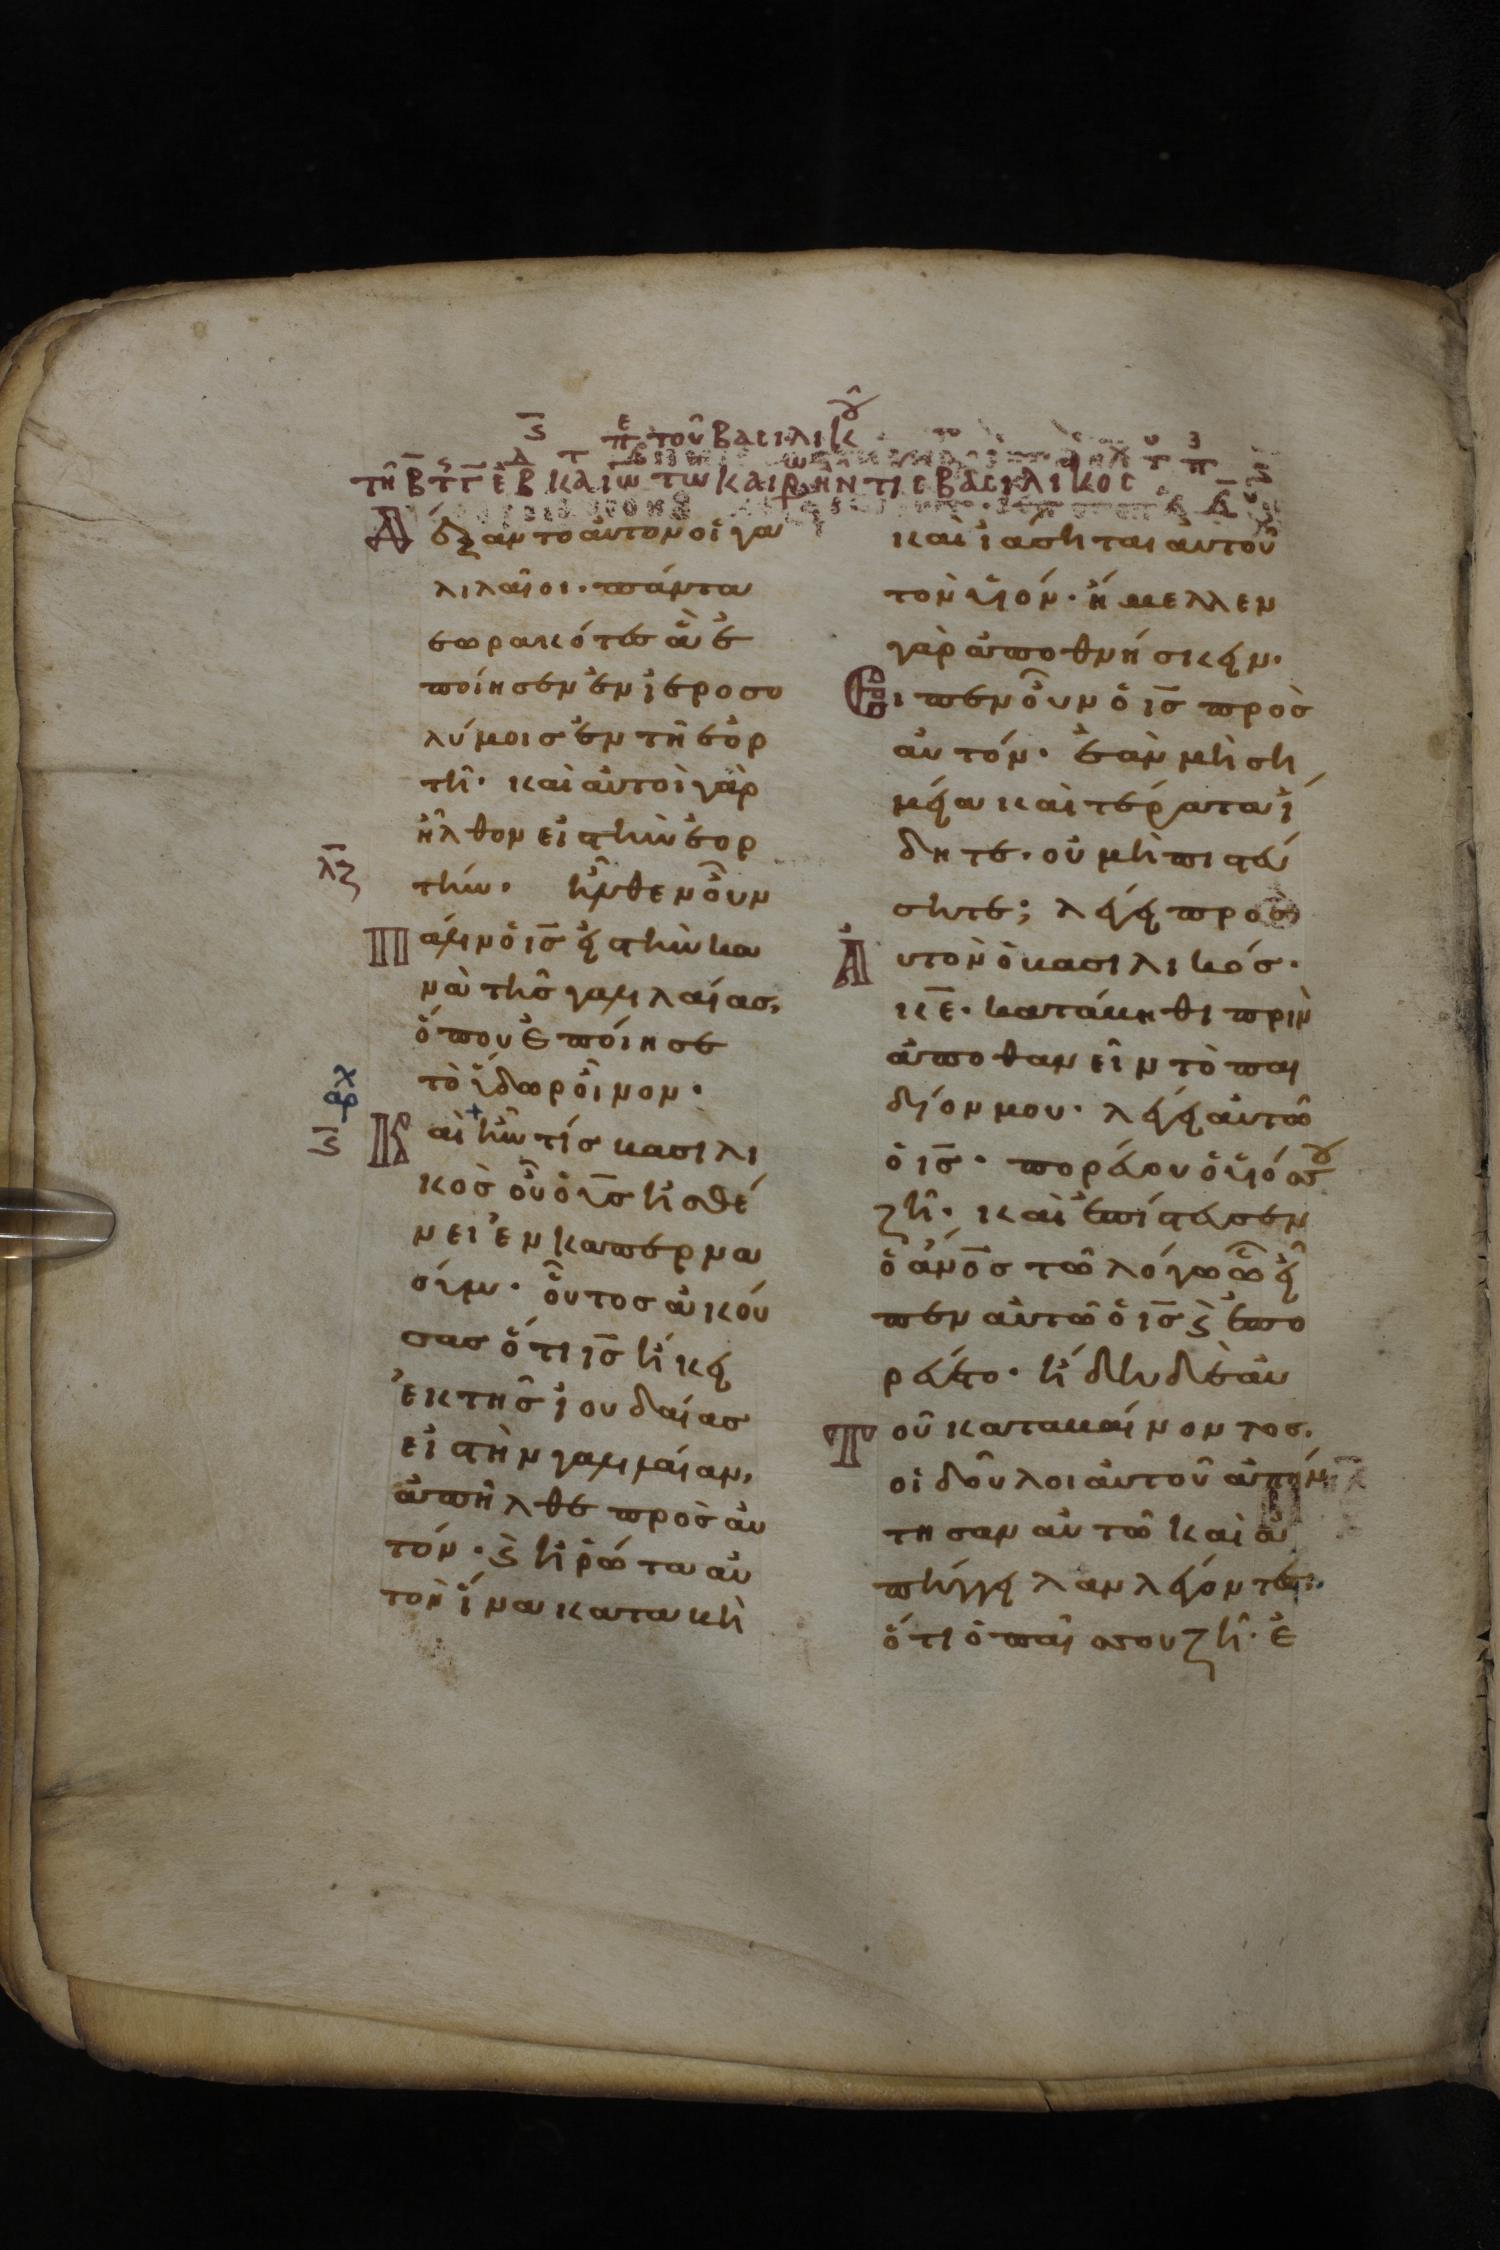 ϛ̅ πε τοῦ βασιλικοῦ
τῆ β̅ τῆς γ̅ ἑβ
τω καιρ ἦν τις βασιλικος
Α δέξαντο ἀυτον οἱ γα
λιλαῖοι· πάντα
εωρακότες ἃ ἐ
ποίησεν ἐν ἱεροσο
λύμοις ἐν τῆ ἑορ
τῆ· καὶ ἀυτοὶ γὰρ
ἦλθον εἰς τὴν ἑορ
τήν· ἦλθεν οὖν
λζ̅
Π άλιν ὁ ις̅ εἰς τὴν κα
νὰ τῆς γαλιλαίας,
ὅπου ἐποίησε
τὸ ὕδωρ οἶνον·
αρχ
ϛ̅
Κ αὶ ἦν τίς βασιλι
κὸς οὗ ὁ υι̅ς ἠσθέ
νει ἐν καπερνα
ούμ· οὗτος ἀκού
σας ὅτι ις̅ ἥκει
ἐκ τῆς ἰουδαίας
εἰς τὴν γαλιλαίαν,
ἀπῆλθε πρὸς ἀυ
τόν· ϛ̀ ἠρώτα ἀυ
τὸν ἵνα καταβῆ
καὶ ἰάσηται ἀυτοῦ
τὸν υἱόν· ἤμελλεν
γὰρ ἀποθνήσκειν·
Ε ιπεν οὖν ὁ ις̅ πρὸς
αυτόν· ἐὰν μὴ ση
μεῖα καὶ τέρατα ἴ
δητε· οὐ μὴ πιστεύ
σητε; λέγει πρὸς
Ἀ υτὸν ὁ βασιλικός·
κε̅· κατάβηθι πρὶν
ἀποθανεῖν τὸ παι
δίον μου· λέγει ἀυτῶ
ὁ ις̅· πορεύου ὁ υἱός σου
ζῆ· καὶ ἐπίστευσεν
ὁ ἀν̅ο̅ς τῶ λόγω ὧ εἶ
πεν ἀυτῶ ὁ ις̅ ϛ̀ ἐπο
ρεύετο· ἤδη δὲ ἀυ
Τ οῦ καταβαίνοντος.
οἱ δοῦλοι ἀυτοῦ ἀπήν
τησαν αὐτῶ καὶ ἀ
πήγγειλαν λέγοντες·
ὅτι ὁ παῖς σου ζῆ· ἐ